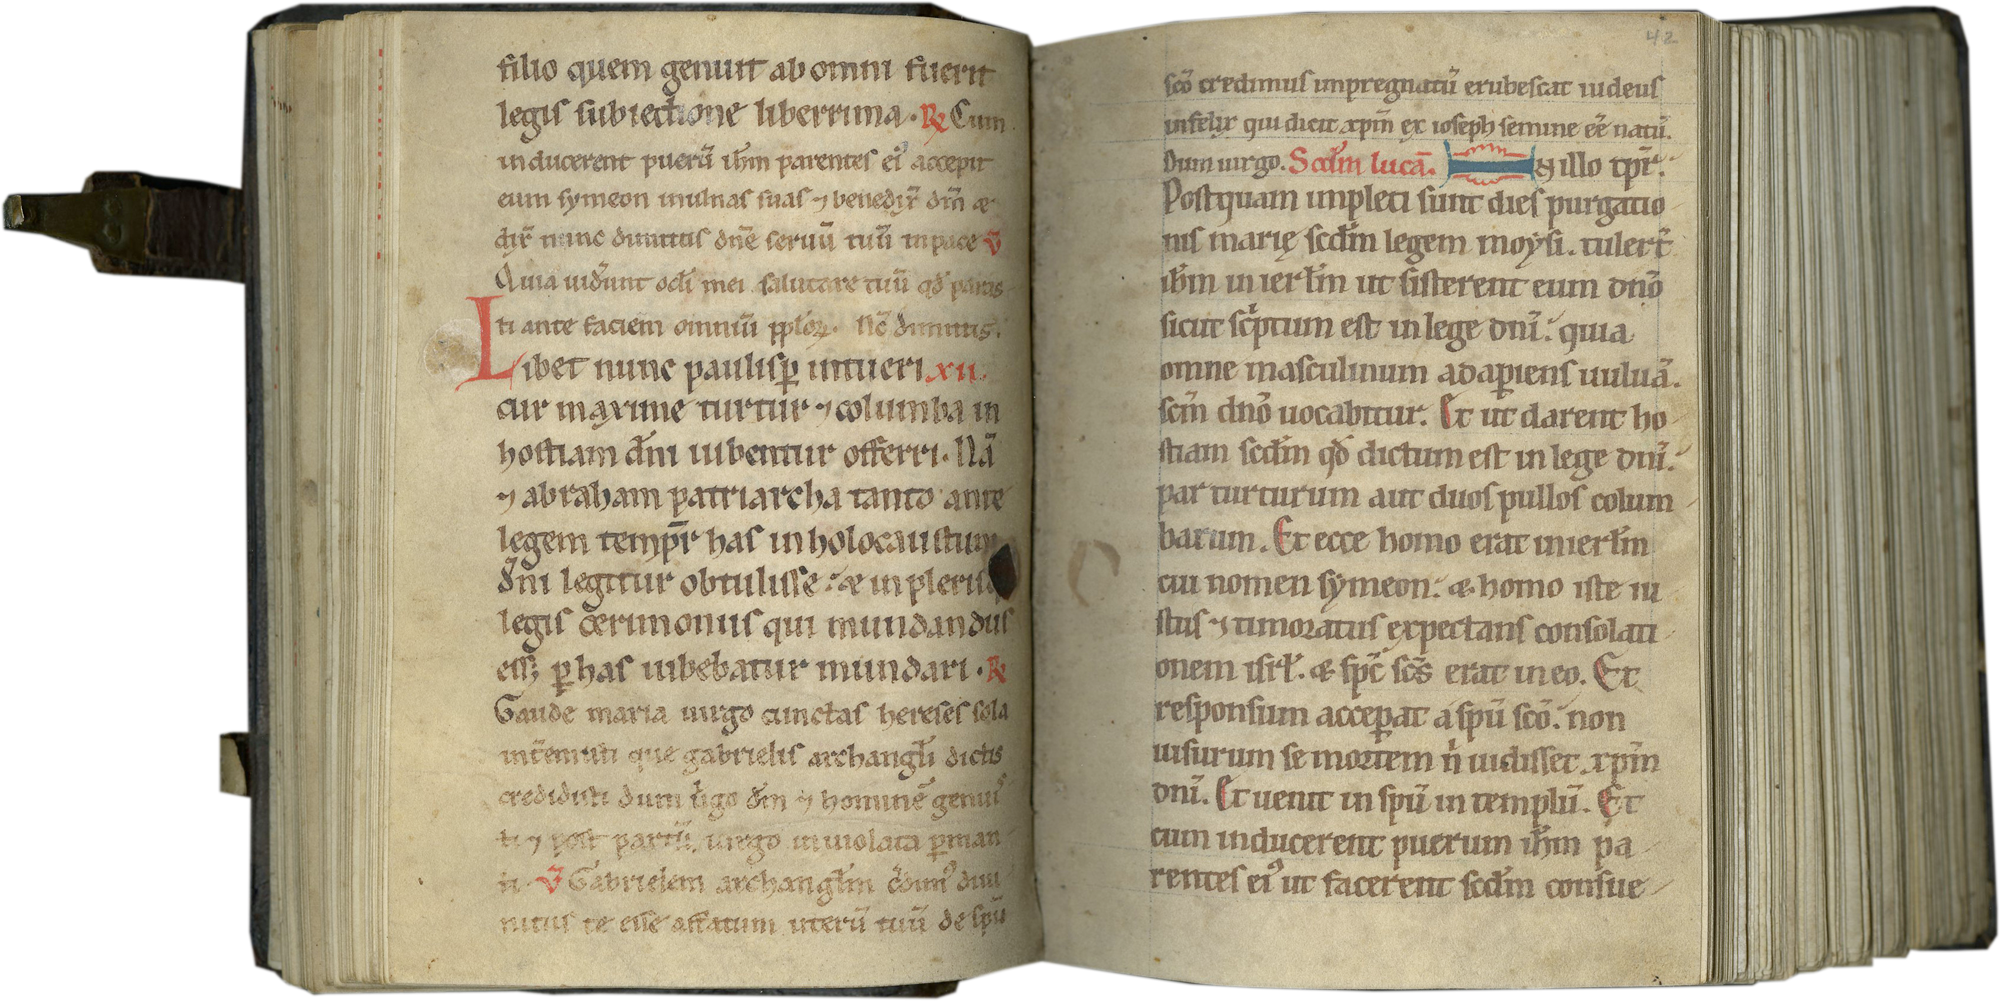 filio quem genuit ab omni fuerit
legis subiectione liberrima. R̸ Cum
inducerent puerū ih̄m parentes ei᾽ accepit
eum symeon in ulnas suas ⁊ benedix̄ dm̄ &
dix̄ nunc dimittis dn̄e seruū tuū in pace V̄
Quia uiderunt oc̄li mei salutare tuū qd̄ paras
ti ante faciem omniū pplōꝝ. Nc̄ dimittis.
Libet nunc paulisꝑ intueri xii.
cur maxime turtur ⁊ columba in
hostiam dn̄i iubentur offerri. Nā
⁊ abraham patriarcha tanto ante
legem temp̄r has in holocaustum
dn̄i legitur obtulisse. & in pleris
legis cerimoniis qui mundandus
ess& ꝑ has iubebatur mundari. R̸
Gaude maria uirgo cunctas hereses sola
intēmisti que gabrielis archangl̄i dictis
credidisti dum ūgo dm̄ ⁊ hominē genuis
ti ⁊ post partū uirgo inuiolata ꝑman
si. V̄ Gabrielem archangl̄m c̄dim᾽ diui
nitus te esse affatum uterū tuū de spū
42
scō credimus inpregnatū erubescat iudeus
infelix qui dicit xp̄m ex ioseph semine eē natū.
Dum uirgo. Scd̄m lucā. IN illo tp̄r.
Postquam impleti sunt dies purgatio
nis marię scd̄m legem moysi. tulert̄
ih̄m in ierl̄m ut sisterent eum dn̄o
sicut sc̄ptum est in lege dn̄i. quia
omne masculinum adaꝑiens uuluā.
scm̄ dn̄o uocabitur. Et ut darent ho
stiam scd̄m qd̄ dictum est in lege dn̄i.
par turturum aut duos pullos colum
barum. Et ecce homo erat in ierl̄m
cui nomen symeon. & homo iste iu
stus ⁊ timoratus expectans consolati
onem isrl̄. & sp̄c sc̄s erat in eo. Et
responsum acceꝑat a spū scō. non
uisurum se mortem n̄ uidisset xp̄m
dn̄i. Et uenit in spū in templū. Et
cum inducerent puerum ih̄m pa
rentes ei᾽ ut facerent scd̄m consue